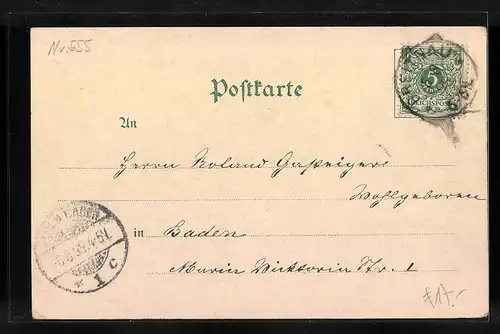 Nr. 655
Postkarte
5
REICHSPOST
An
Herrn Roland Gasteigere
Wohlgeboren
in Baden
Marin Wicktoria Str. 1
BADEN
* 1 c